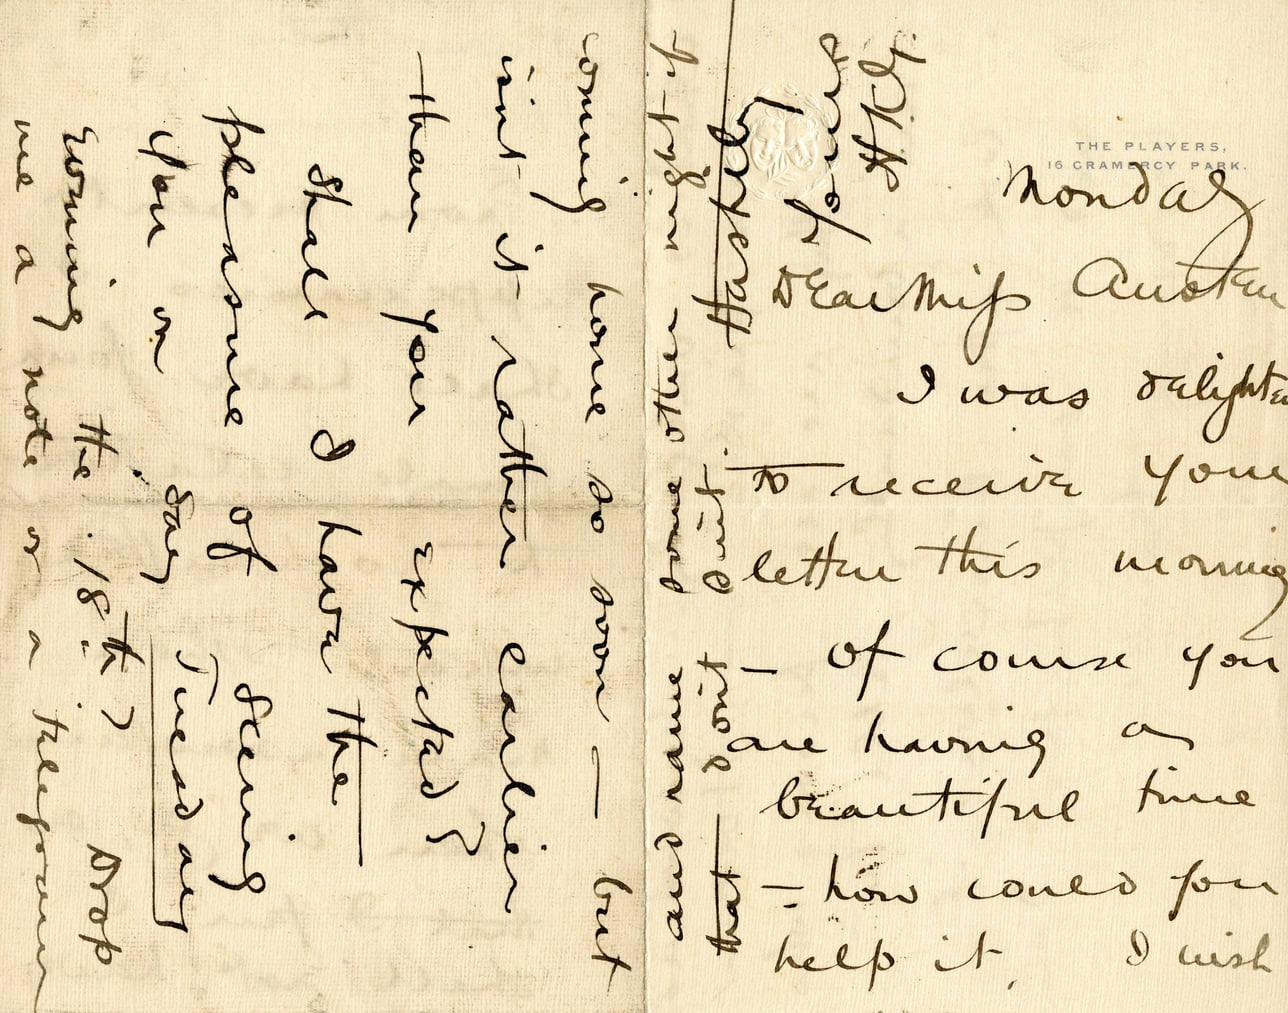 THE PLAYERS,
16 GRAMERCY PARK.
Monday
Dear Miss Austen
I was delighte
to receive your
letter this morning
— of course you
are having a
beautiful time
— how could you
help it. I wish
coming home so soon — but
isn't it rather earlier
than you expected?
Shall I have the
pleasure of seeing
you on say Tuesday
evening the 18th? Drop
me a note or a telegram
and name some other night if
that don't suit. Hastily
Yours